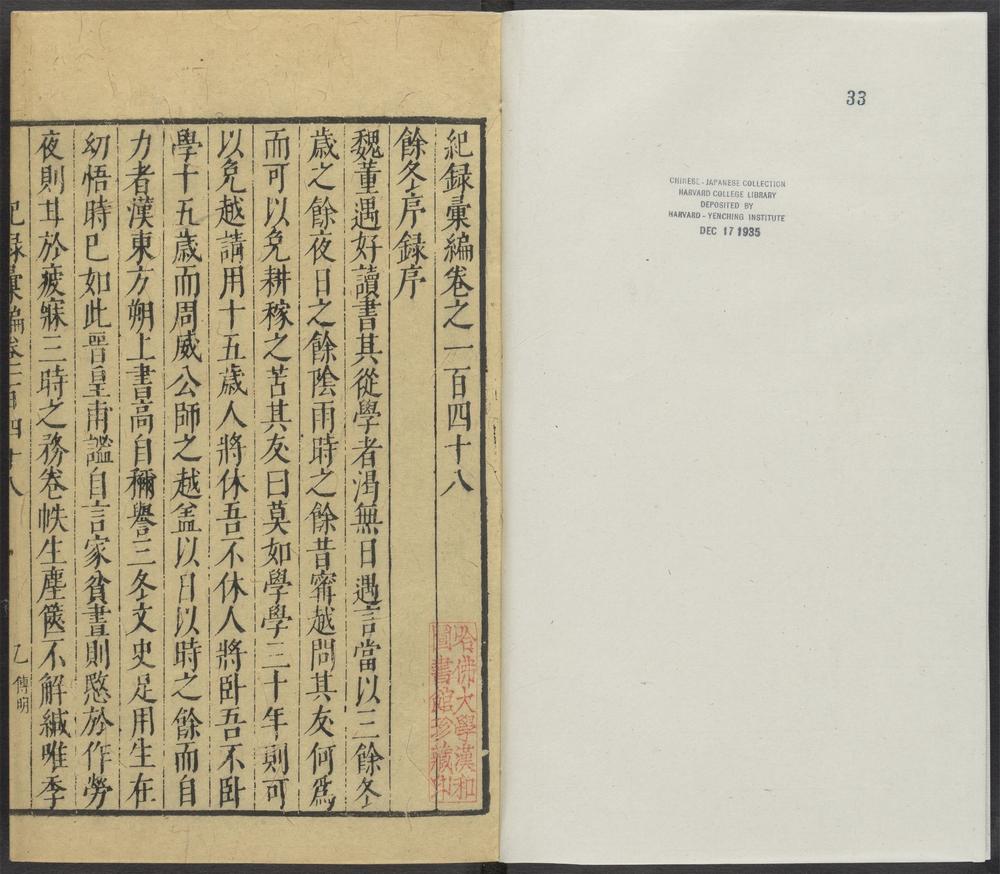 33
CHINESE - JAPANESE COLLECTION
HARVARD COLLEGE LIBRARY
DEPOSITED BY
HARVARD - YENCHING INSTITUTE
DEC 17 1935
紀録彙編卷之一百四十八
餘冬序録序
魏董遇好讀書其從學者渴無日遇言當以三餘冬
歲之餘夜日之餘陰雨時之餘昔甯越問其友何爲
而可以免耕稼之苦其友曰莫如學學三十年則可
以免越請用十五歲人將休吾不休人將卧吾不卧
學十五歲而周威公師之越盖以日以時之餘而自
力者漢東方朔上書高自稱譽三冬文史足用生在
幼悟時已如此晉皇甫謐自言家貧晝則愍於作勞
夜則甘於疲寐三時之務卷帙生塵篋不解緘唯季
紀録彙編卷一百四十八
傅明
哈佛大學漢和
圖書館珍藏印